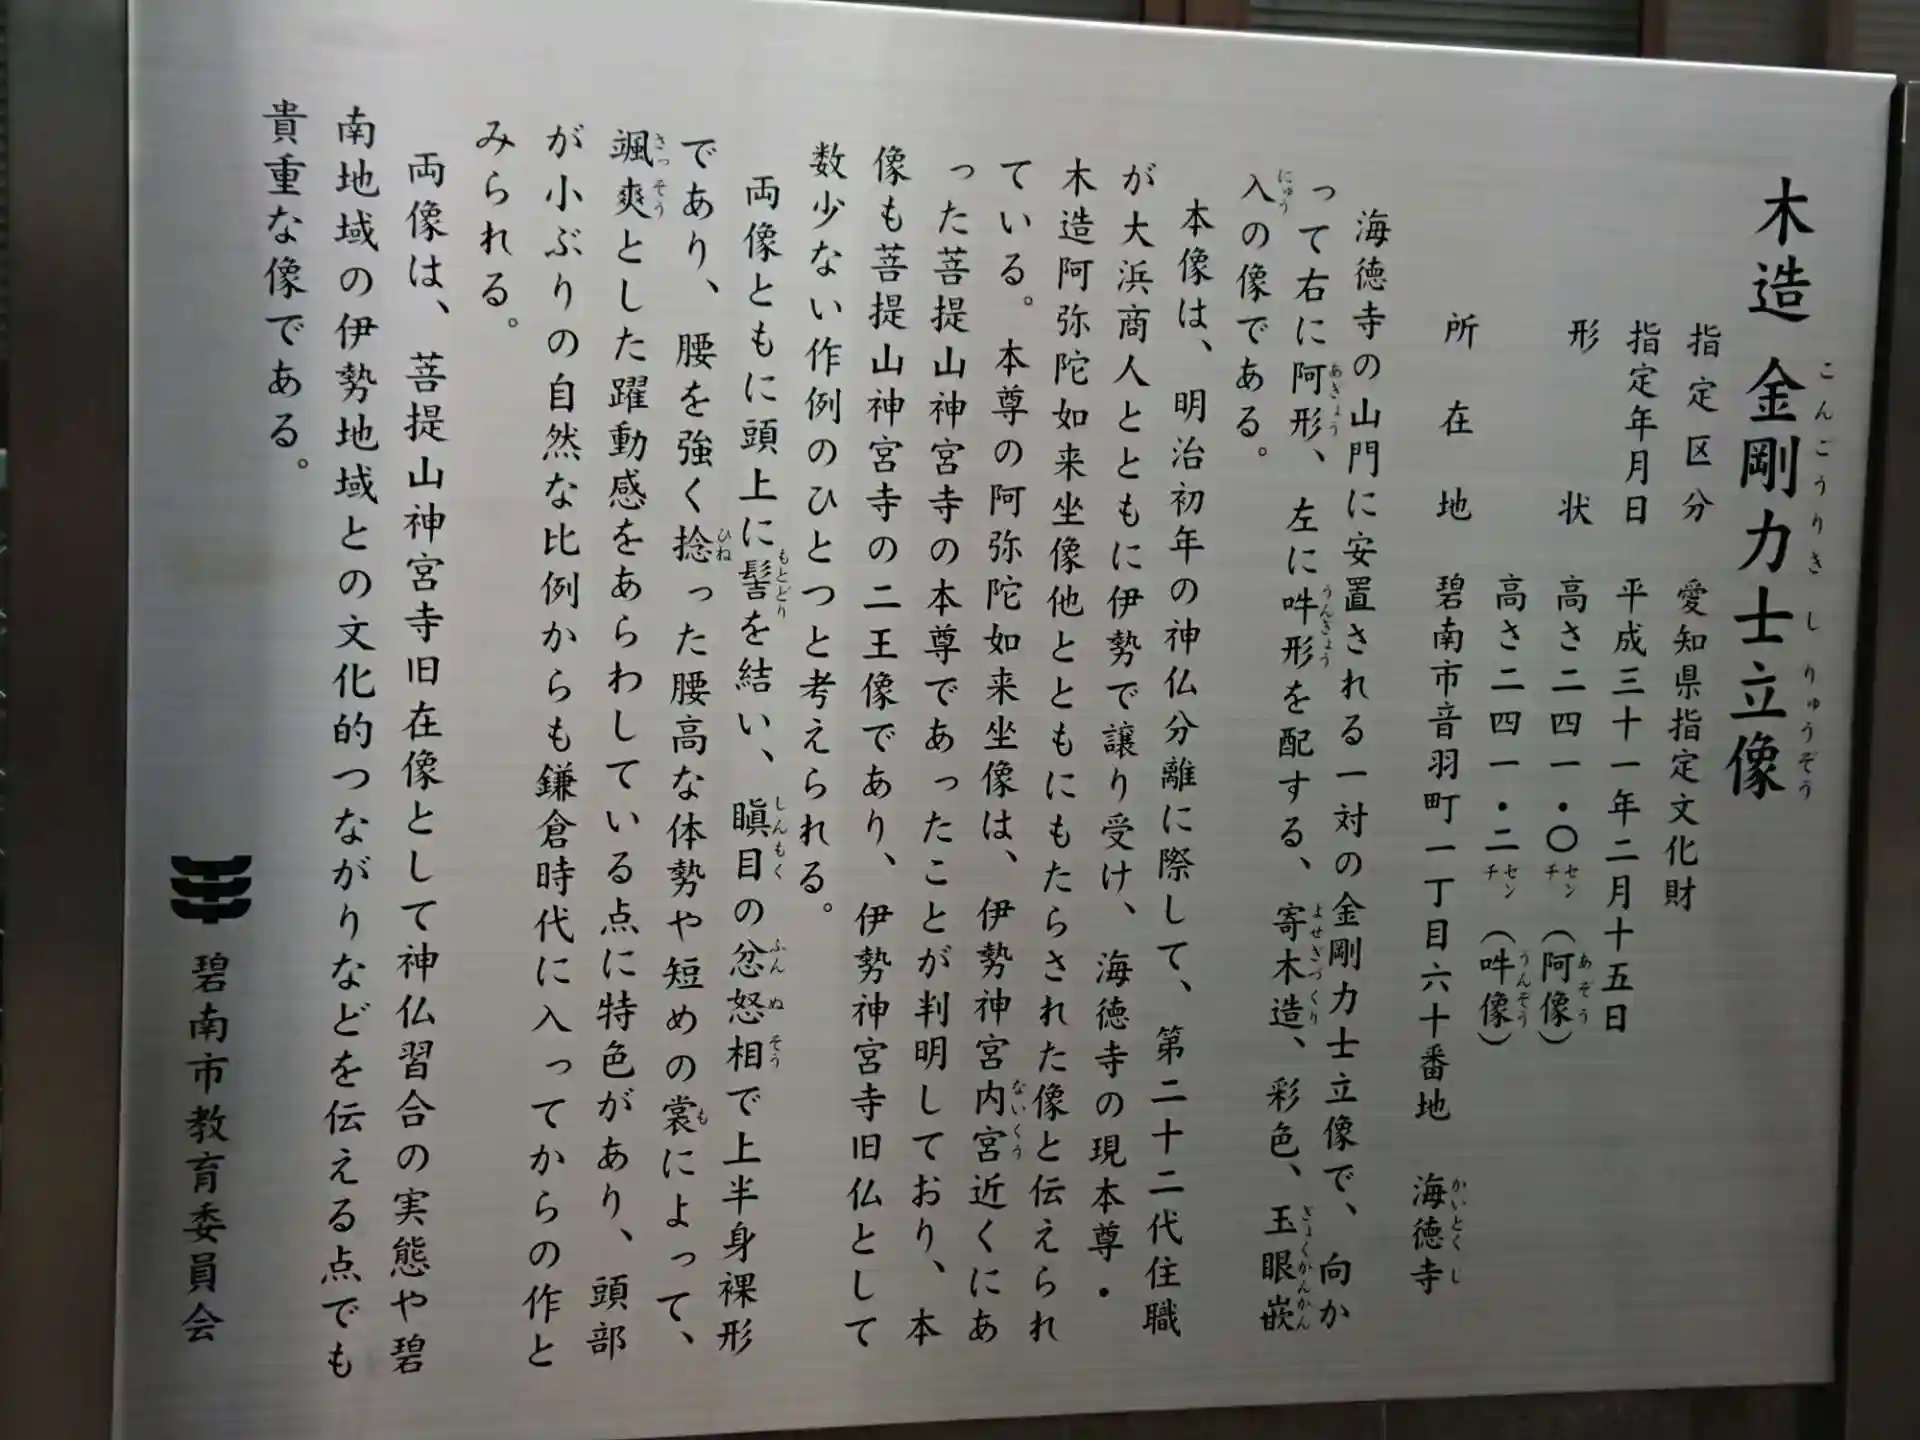 木造 金剛力士立像
こんごうりきしりゅうぞう
指定区分 愛知県指定文化財
指定年月日 平成三十一年二月十五日
形状 高さ二四一・〇センチ（阿像）
あぞう
高さ二四一・二センチ（吽像）
うんぞう
所在地 碧南市音羽町一丁目六十番地 海徳寺
かいとくじ
海徳寺の山門に安置される一対の金剛力士立像で、向か
って右に阿形、左に吽形を配する、寄木造、彩色、玉眼嵌
あぎょう うんぎょう よせぎづくり ぎょくがんかん
入の像である。
にゅう
本像は、明治初年の神仏分離に際して、第二十二代住職
が大浜商人とともに伊勢で譲り受け、海徳寺の現本尊・
木造阿弥陀如来坐像他とともにもたらされた像と伝えられ
ている。本尊の阿弥陀如来坐像は、伊勢神宮内宮近くにあ
ないくう
った菩提山神宮寺の本尊であったことが判明しており、本
像も菩提山神宮寺の二王像であり、伊勢神宮寺旧仏として
数少ない作例のひとつと考えられる。
両像ともに頭上に髻を結い、瞋目の忿怒相で上半身裸形
もとどり しんもく ふんぬそう
であり、腰を強く捻った腰高な体勢や短めの裳によって、
ひね も
颯爽とした躍動感をあらわしている点に特色があり、頭部
さっそう
が小ぶりの自然な比例からも鎌倉時代に入ってからの作と
みられる。
両像は、菩提山神宮寺旧在像として神仏習合の実態や碧
南地域の伊勢地域との文化的つながりなどを伝える点でも
貴重な像である。
碧南市教育委員会